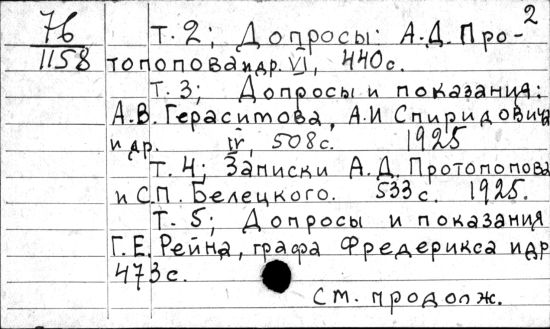 76
1158
2
Т. 2; Допросы: А.Д. Про-
топопова и др. VI, 440 с.
Т. 3; Допросы и показания:
А.В. Герасимова, А.И Спиридовича
и др. IV, 508 с. 1925
Т. 4; Записки А.Д. Протопопова
и С.П. Белецкого. 533 с. 1925.
Т. 5; Допросы и показания
Г.Е. Рейна, графа Фредерикса и др
473 с.
См. продолж.